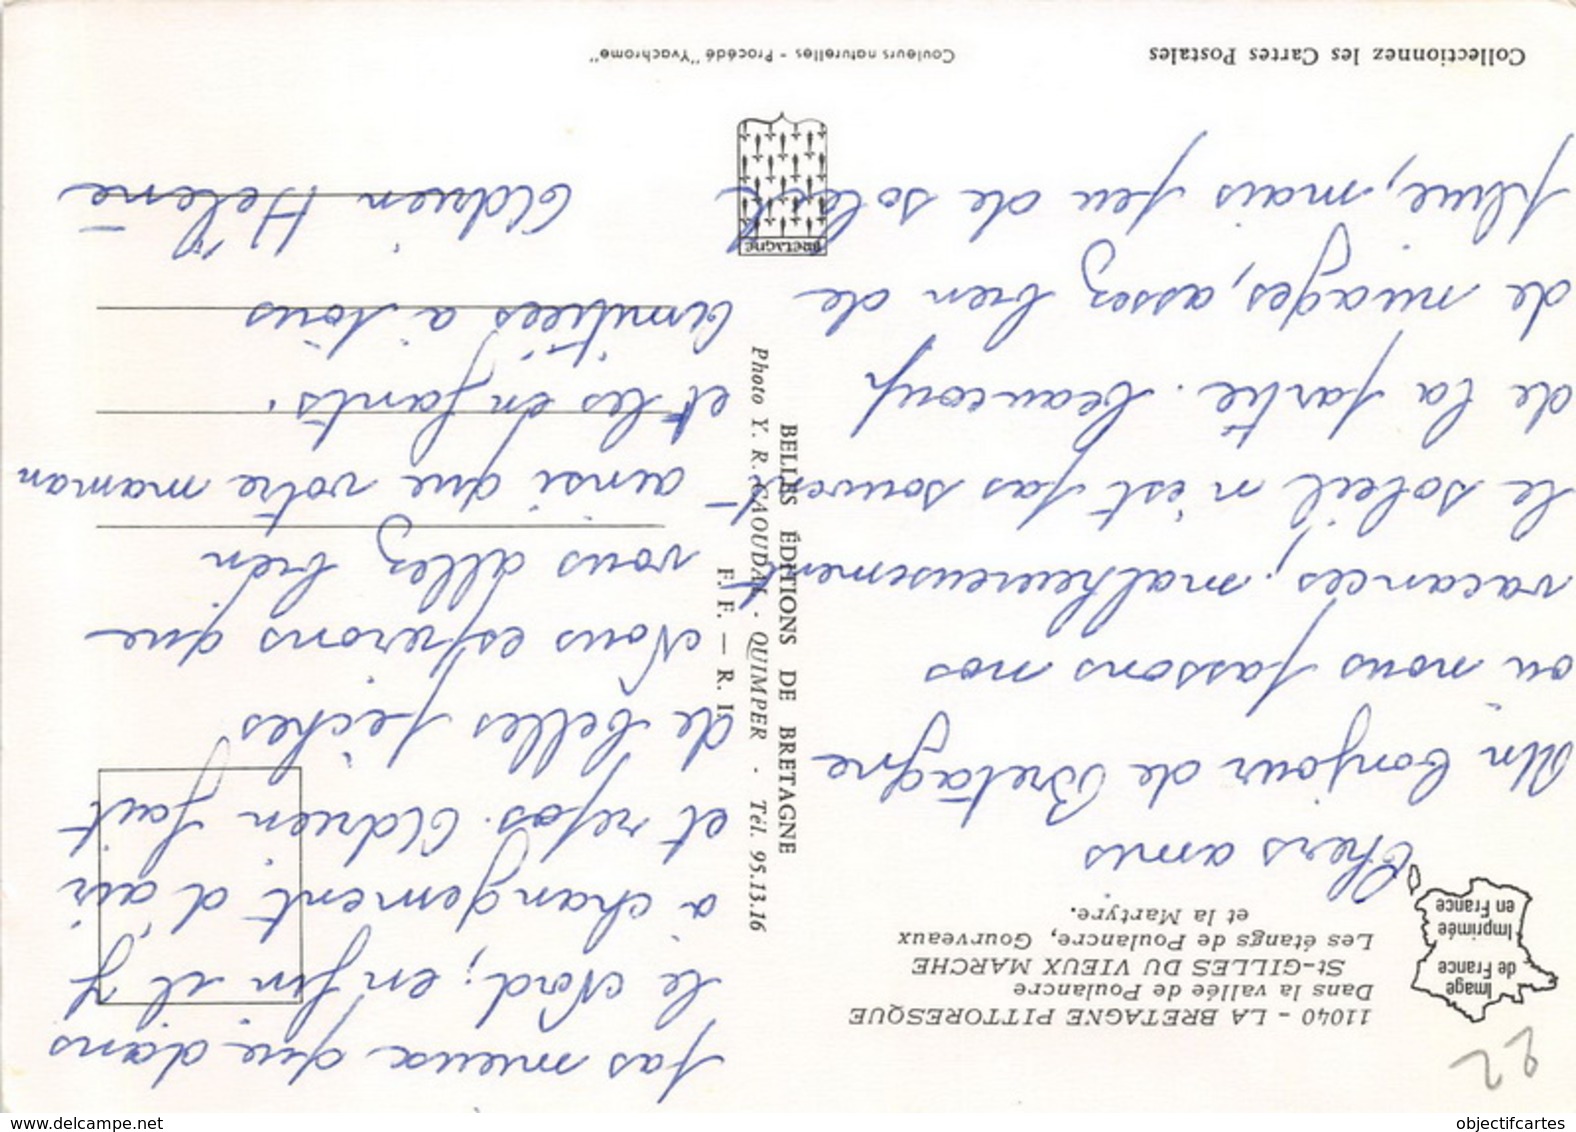 11040 - LA BRETAGNE PITTORESQUE
Dans la vallée de Poulancre
St-GILLES DU VIEUX MARCHE
Les étangs de Poulancre, Gourveaux
et la Martyre.
Image
de France
Imprimée
en France
22
Chers amis
Un bonjour de Bretagne
ou nous passons nos
vacances. malheureusement
le soleil n'est pas souvent
de la partie. beaucoup
de nuages, assez bien de
pluie, mais peu de soleil
pas mieux que dans
le Nord; enfin il y
a changement d'air
et repos. Adrien fait
de belles pêches
Nous esperons que
vous allez bien
ainsi que votre maman
et les enfants.
Amitiées a tous
Adrien Helene
BELLES ÉDITIONS DE BRETAGNE
Photo Y. R. CAOUDAL - QUIMPER - Tél. 95.13.16
F. F. — R. I.
BRETAGNE
Collectionnez les Cartes Postales
Couleurs naturelles - Procédé "Yvachrome"
objectifcartes